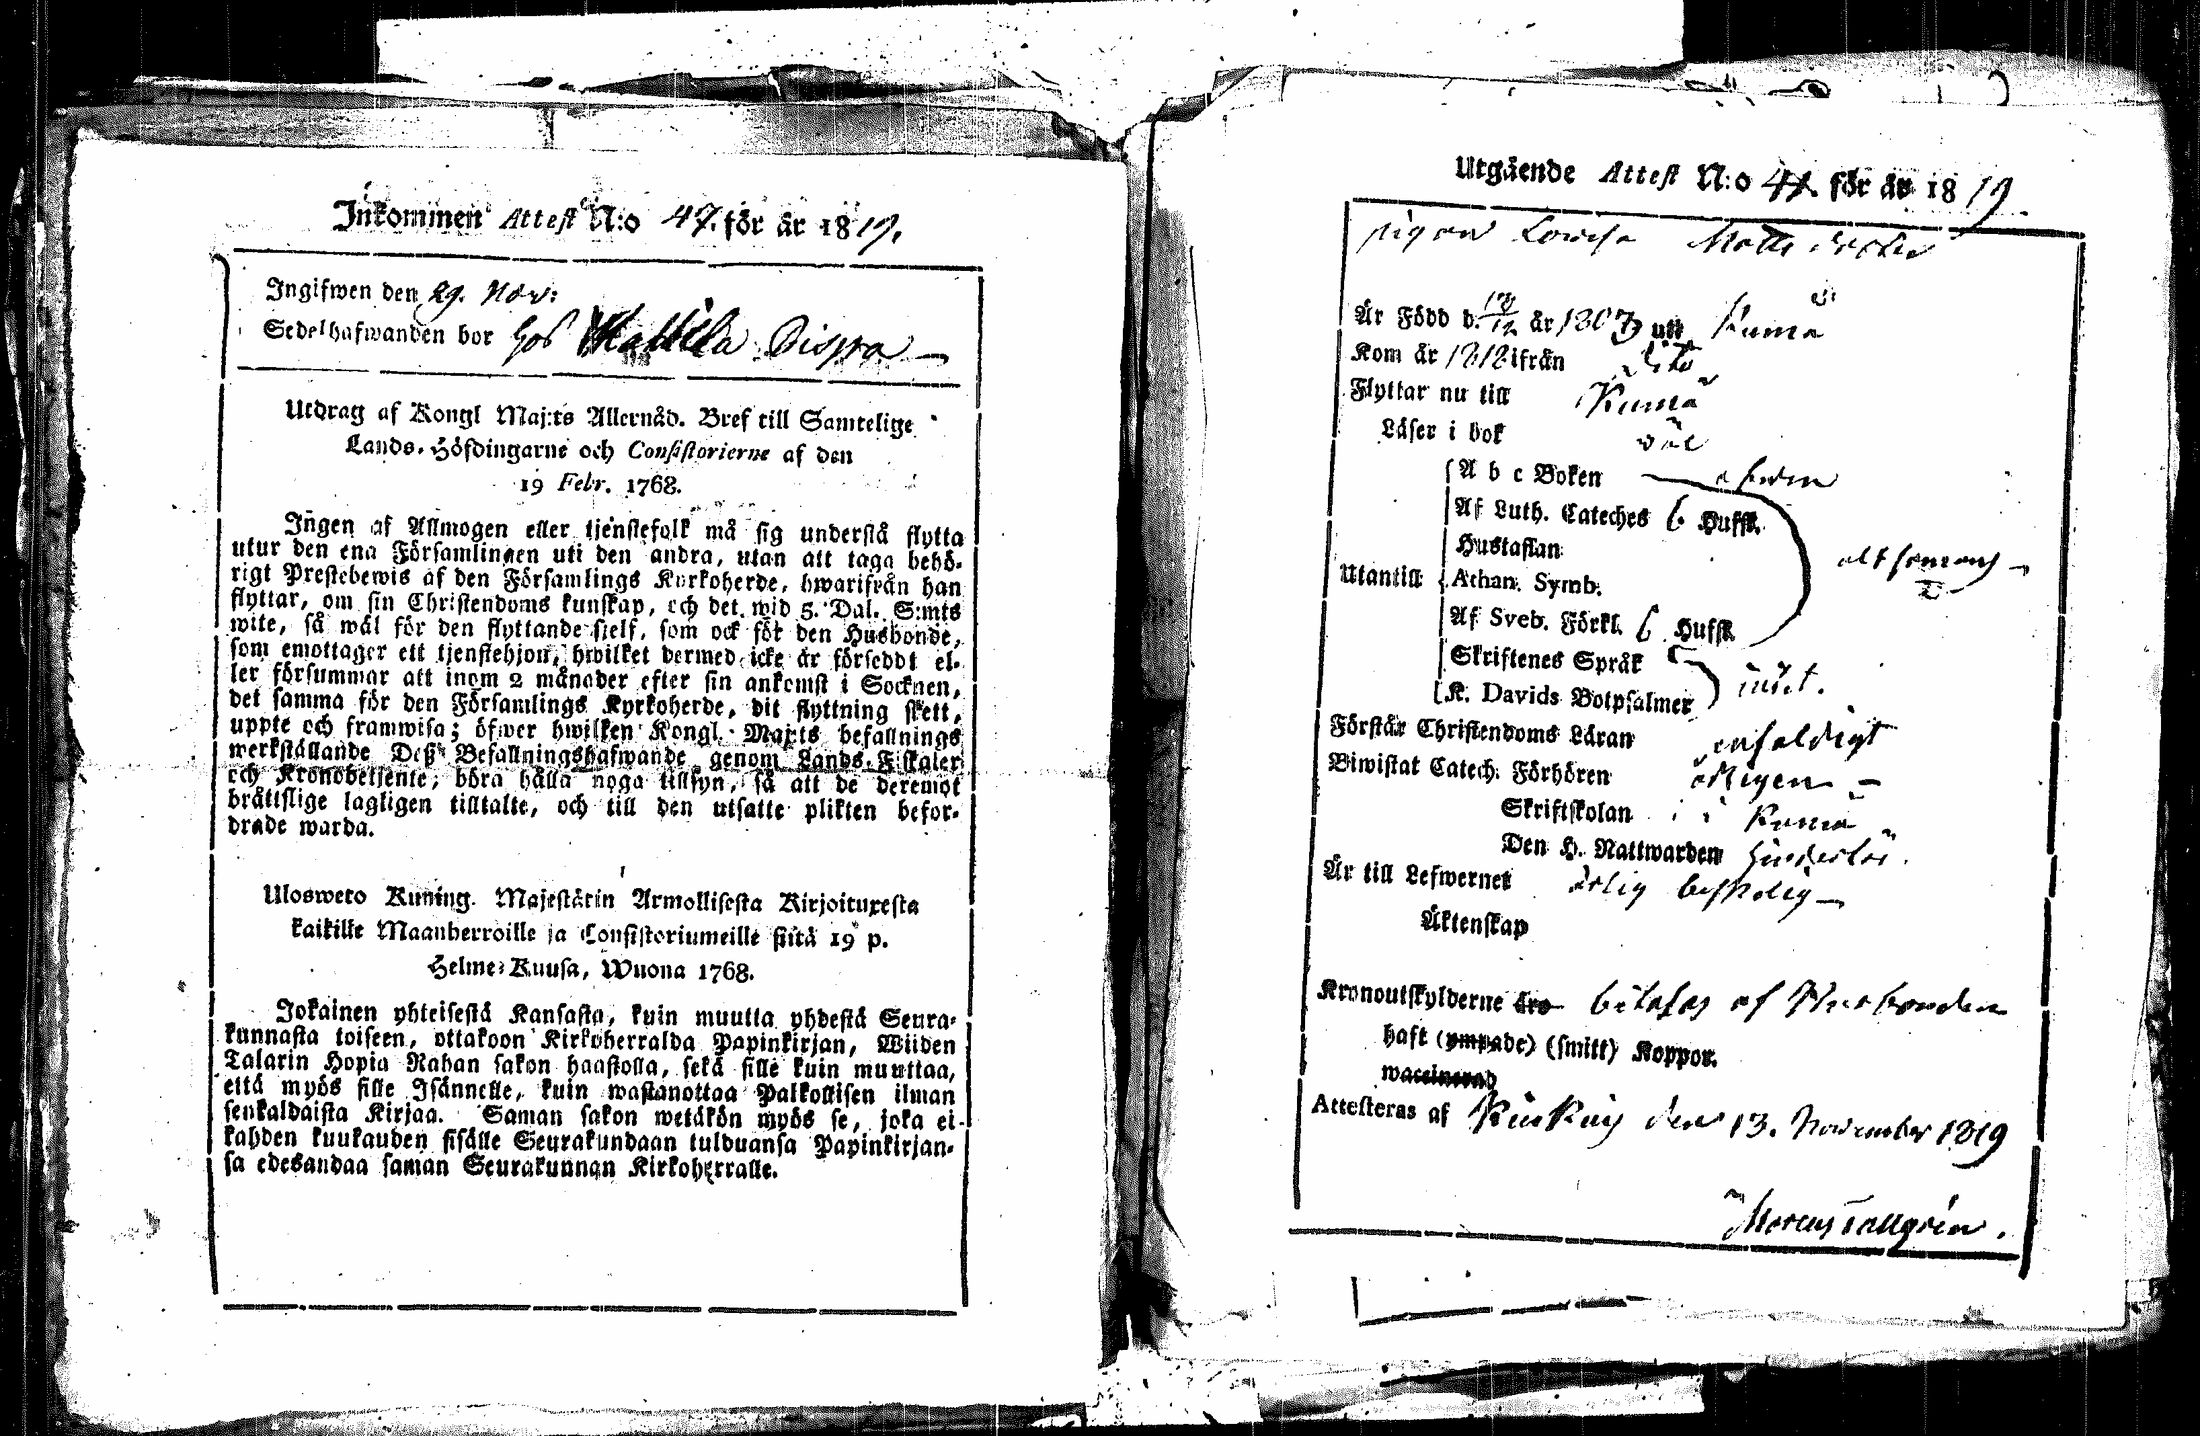 Inkommen Attest N:o 47. för år 1819.
Ingifwen den 29. Nov:
Sedelhafwanden bor hos Mattila Dispra
Utdrag af Kongl Maj:ts Allernåd. Bref till Samtelige
Lands-Höfdingarne och Consistorierne af den
19 Febr. 1768.
Ingen af Allmogen eller tjenstefolk må sig understå flytta
utur den ena Församlingen uti den andra, utan att taga behö-
rigt Prestebewis af den Församlings Kyrkoherde, hwarifrån han
flyttar, om sin Christendoms kunskap, och det wid 5. Dal. S:mts
wite, så wäl för den flyttande sjelf, som ock för den Husbonde,
som emottager ett tjenstehjon, hwilket dermed icke är förseddt el-
ler försummar att inom 2 månader efter sin ankomst i Socknen,
det samma för den Församlings Kyrkoherde, dit flyttning skett,
uppte och framwisa; öfwer hwilken Kongl. Maj:ts befallnings
werkställande Deß Befallningshafwande genom Lands-Fiskaler
och Kronobetjente, böra hålla noga tillsyn, så att de deremot
bråttslige lagligen tilltalte, och till den utsatte plikten befor-
drade warda.
Ulosweto Kuning. Majestätin Armollisesta Kirjoituxesta
kaikille Maanherroille ja Consistoriumeille siitä 19 p.
Helme-Kuusa, Wuona 1768.
Jokainen yhteisestä Kansasta, kuin muutta yhdestä Seura-
kunnasta toiseen, ottakoon Kirkoherralda Papinkirjan, Wiiden
Talarin Hopia Rahan sakon haastolla, sekä sille kuin muuttaa,
että myös sille Isännelle, kuin wastanottaa Palkollisen ilman
senkaldaista Kirjaa. Saman sakon wetäkön myös se, joka ei-
kahden kuukauden sisälle Seurakundaan tulduansa Papinkirjan-
sa edesandaa saman Seurakunnan Kirkoherralle.
Utgående Attest N:o 41. för år 1819
pigan Lovisa Matts dotter
Är Född d. 18/12 år 1803 uti Kumå
Kom år 1818 ifrån dito
Flyttar nu till Kumå
Läser i bok wäl
A b c Boken
Af Luth. Cateches 6 Hufst.
Hustaflan
Utantill Athan. Symb. alt
Af Sveb. Förkl. 6 Hufst.
Skriftenes Språk
K. Davids Botpsalmer intet.
Förstår Christendoms Läran enfaldigt
Biwistat Catech. Förhören årligen
Skriftskolan i Kumå
Den H. Nattwarden
Är till Lefwernet ärlig beskedlig
Äktenskap
Kronoutskylderne äro betalas af Husbonden
haft (ympade) (smitt) Koppor.
waccinerad
Attesteras af Kiukais den 13. November 1819
Marcus Tallgrén.